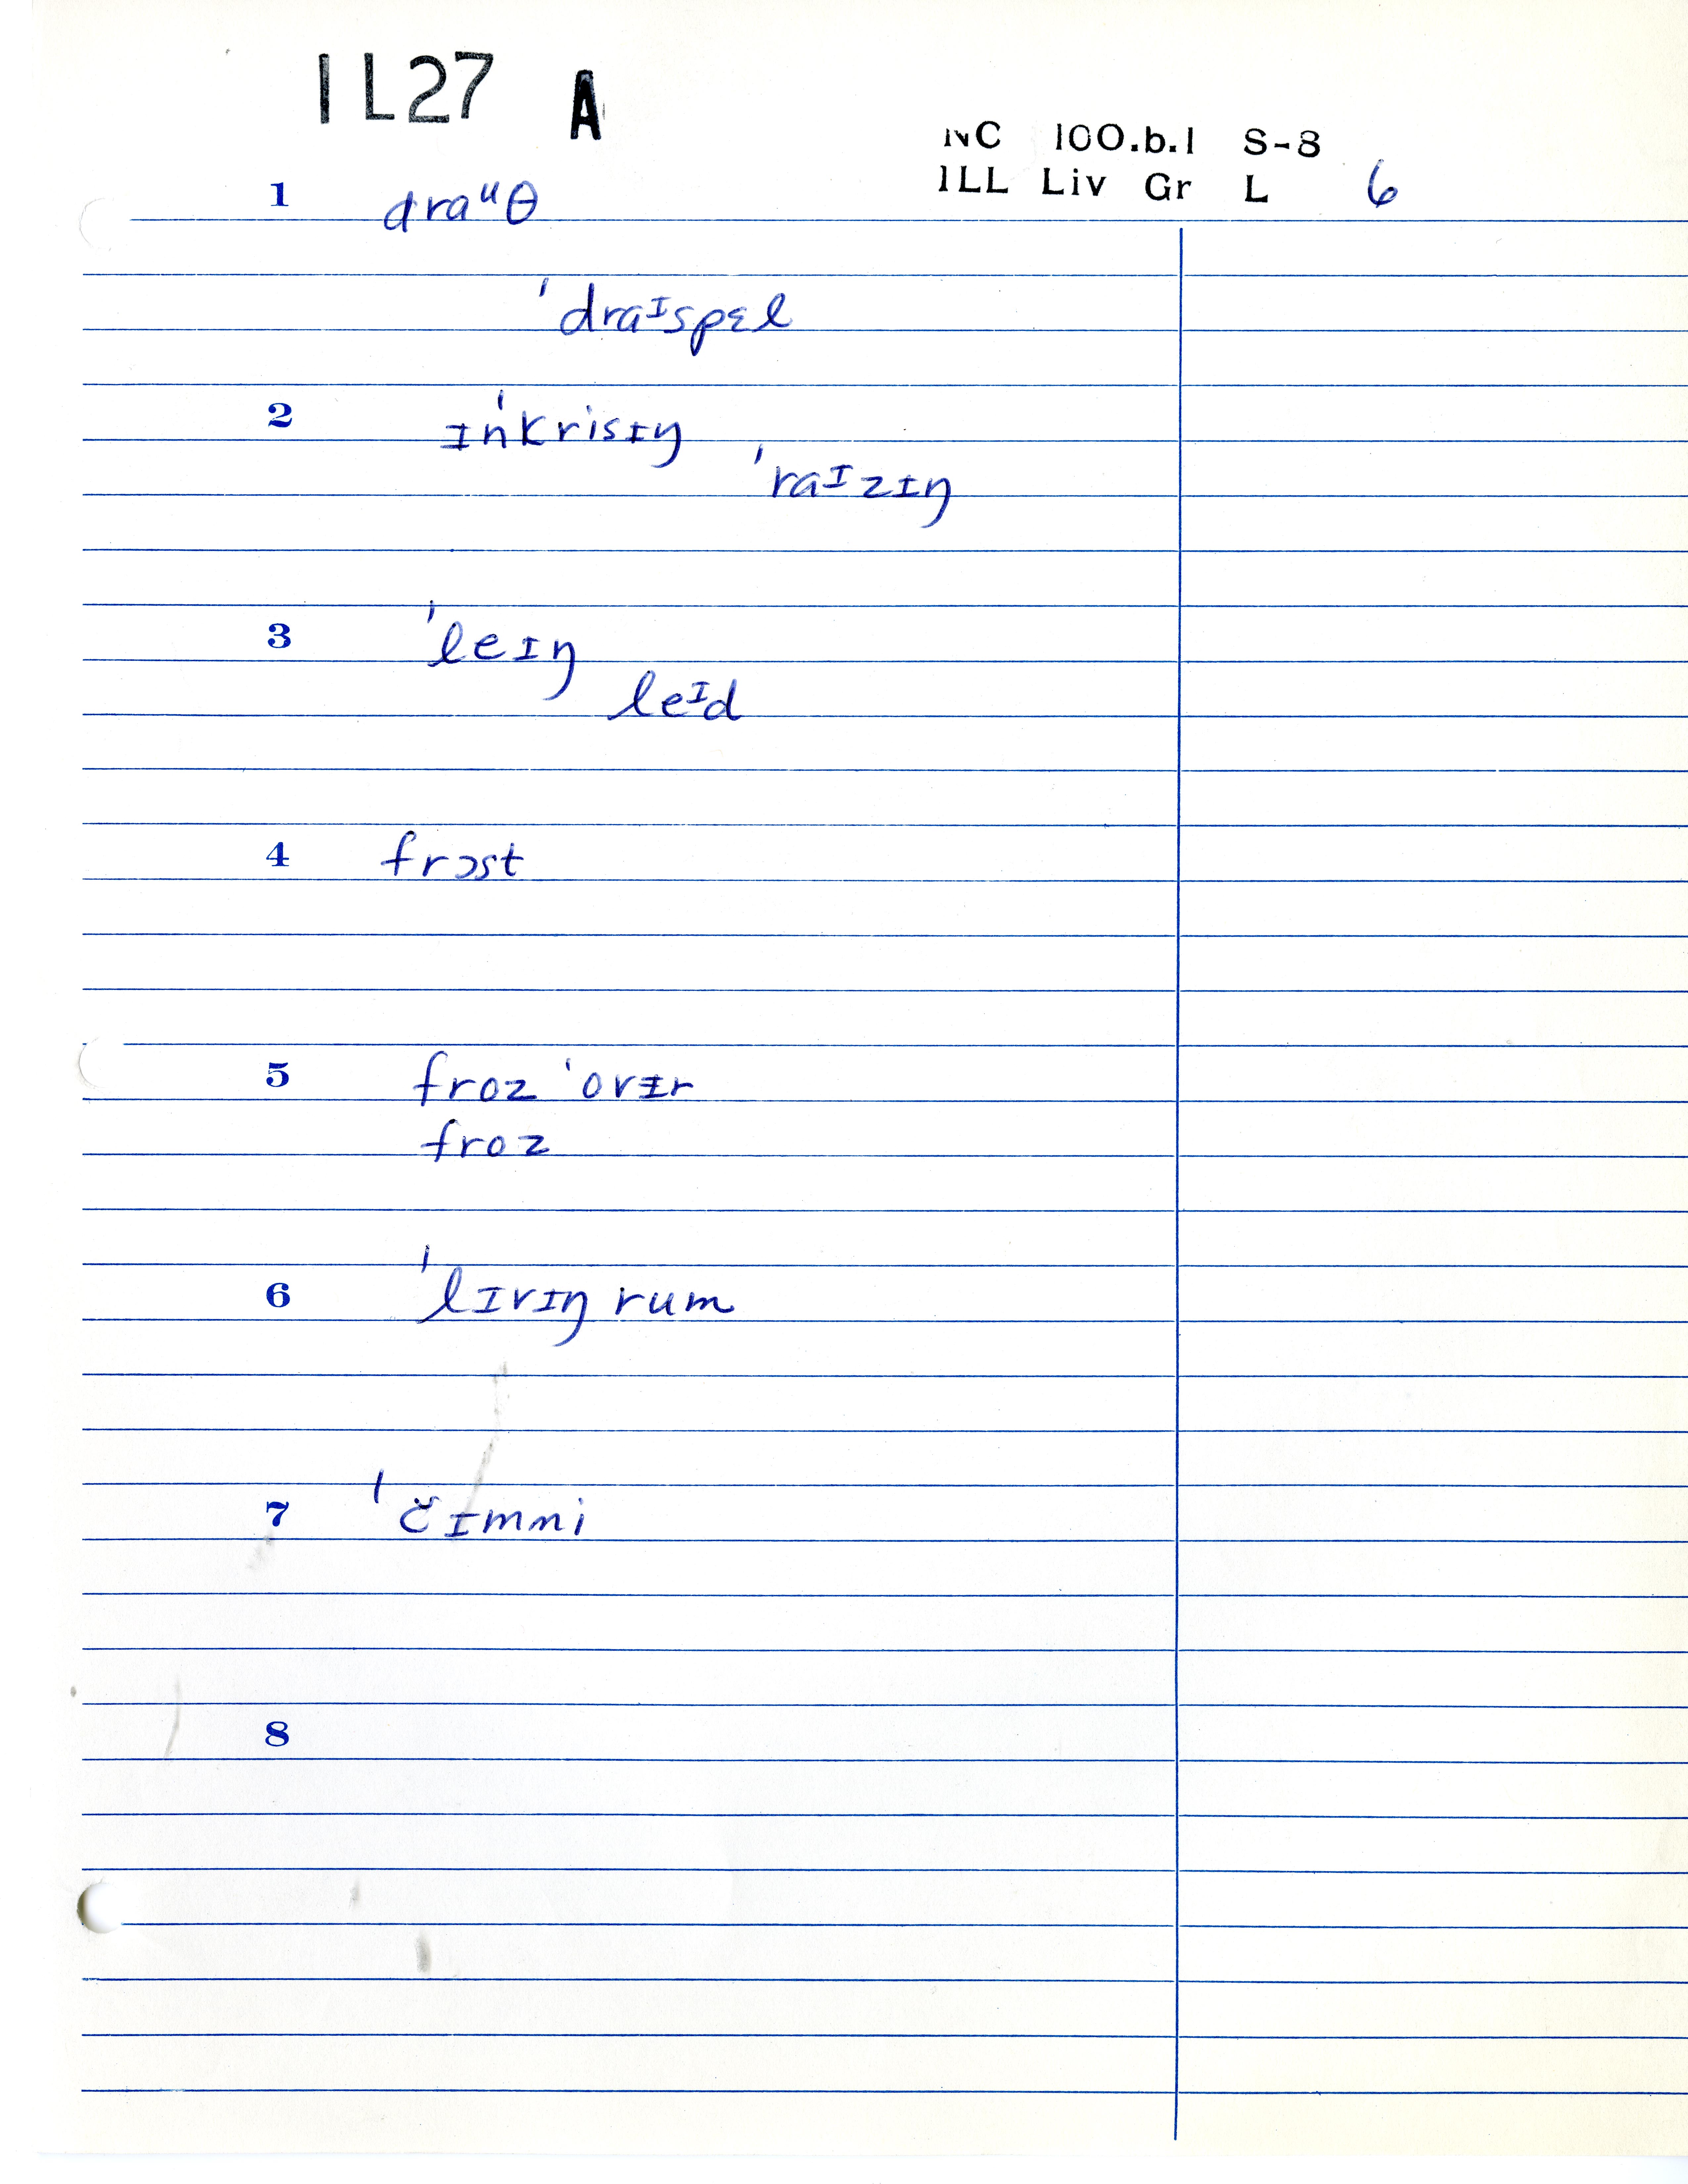 1L27 A
NC 100.b.1 S-8
ILL Liv Gr L 6
1 draᶸθ
ˈdraᶦspɛl
2 ɪnˈkrisɪŋ
ˈraᶦzɪŋ
3 ˈleɪŋ
leᶦd
4 frɔst
5 froz ˈovɨr
froz
6 ˈlɪvɪŋ rum
7 ˈčɪmni
8